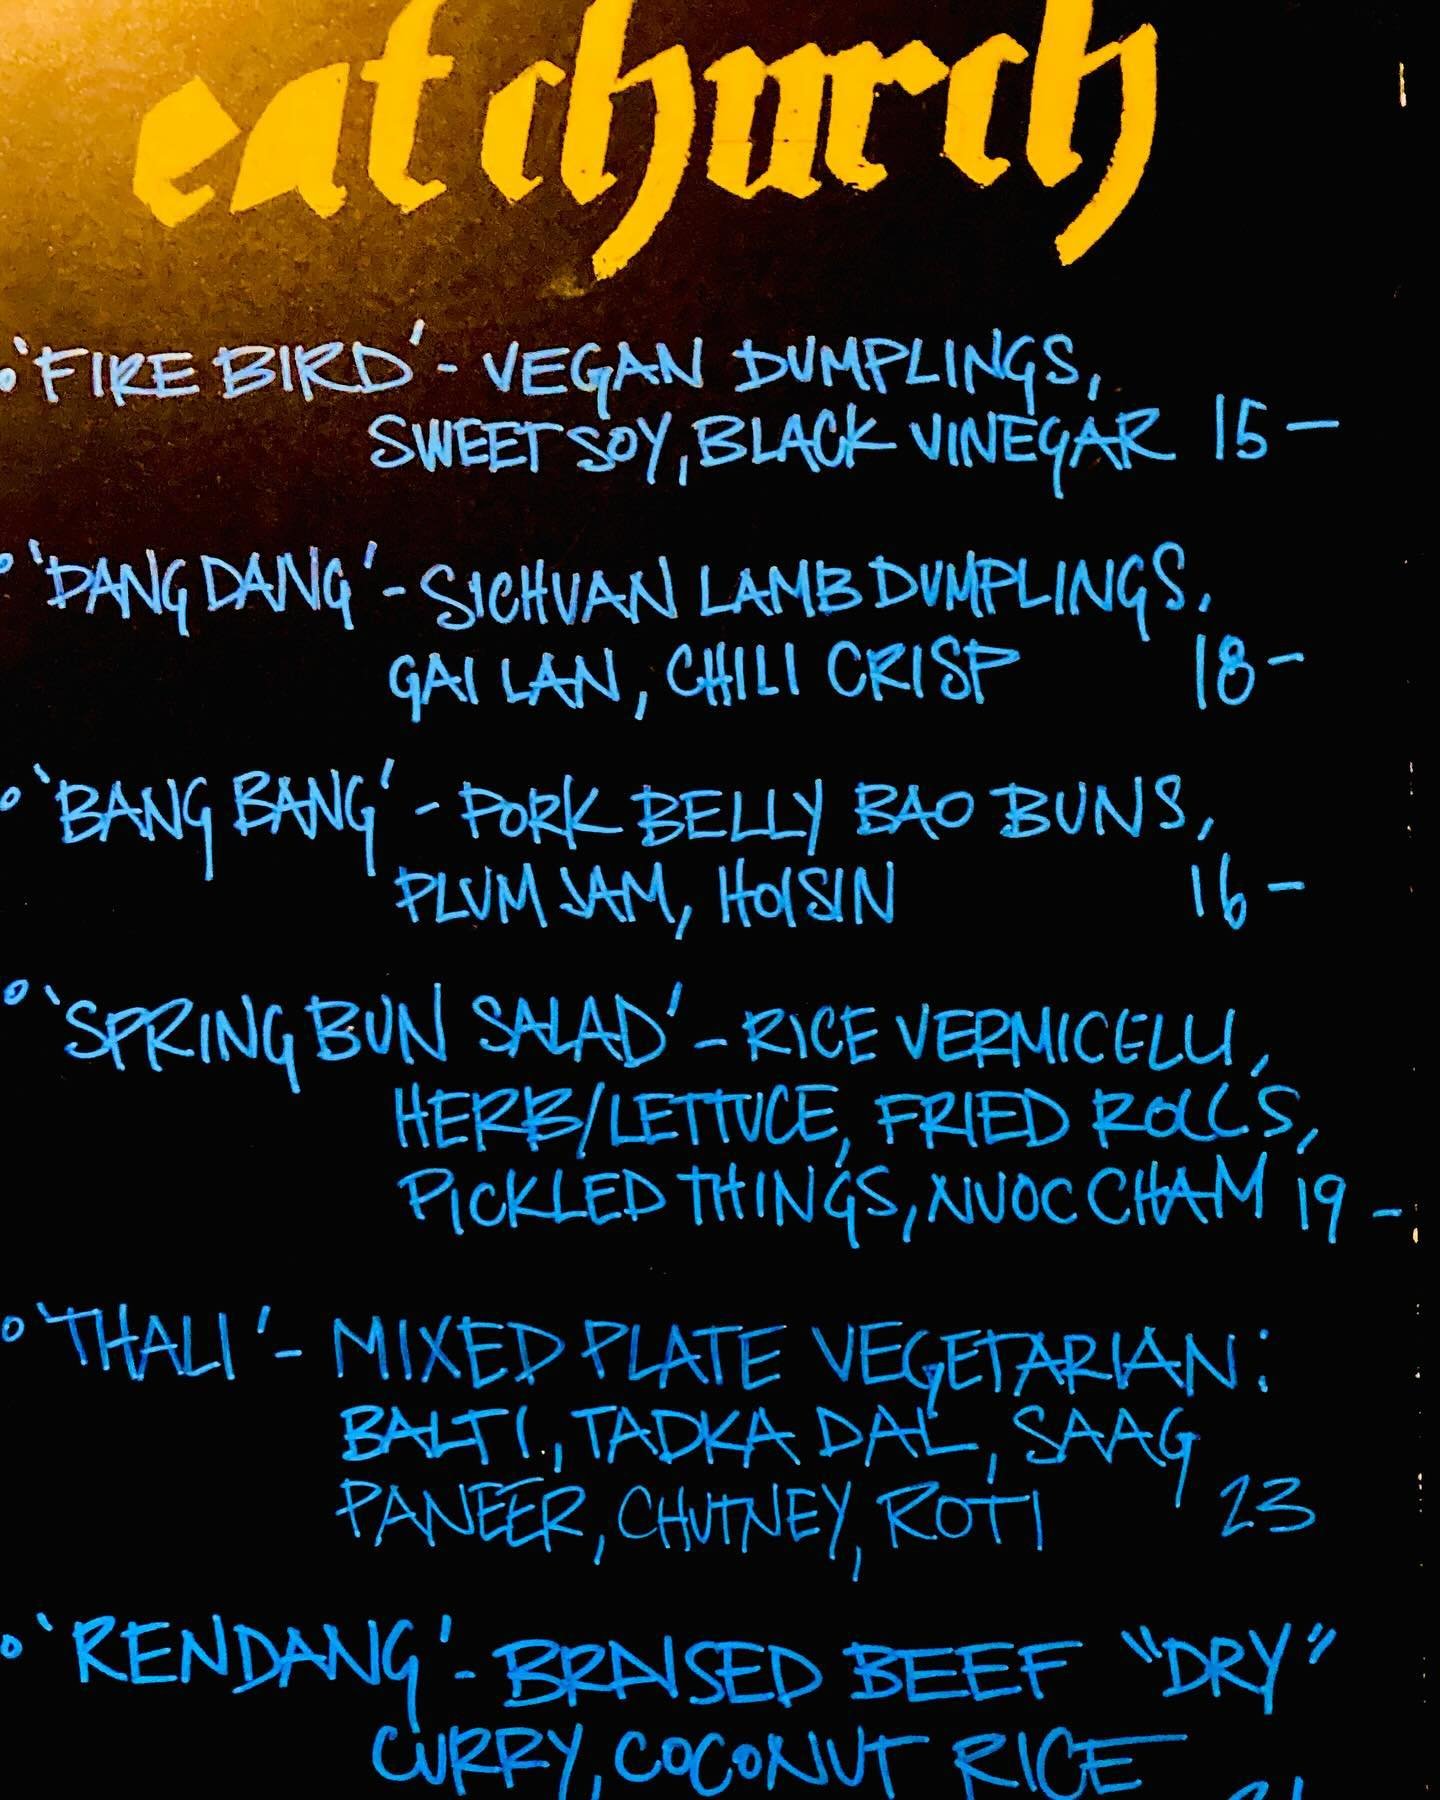 eat church
'FIRE BIRD' - VEGAN DUMPLINGS,
SWEET SOY, BLACK VINEGAR 15 -
'DANG DANG' - SICHUAN LAMB DUMPLINGS,
GAI LAN, CHILI CRISP 18 -
'BANG BANG' - PORK BELLY BAO BUNS,
PLUM JAM, HOISIN 16 -
'SPRING BUN SALAD' - RICE VERMICELLI,
HERB/LETTUCE, FRIED ROLLS,
PICKLED THINGS, NUOC CHAM 19 -
'THALI' - MIXED PLATE VEGETARIAN:
BALTI, TADKA DAL, SAAG
PANEER, CHUTNEY, ROTI 23
'RENDANG' - BRAISED BEEF "DRY"
CURRY, COCONUT RICE